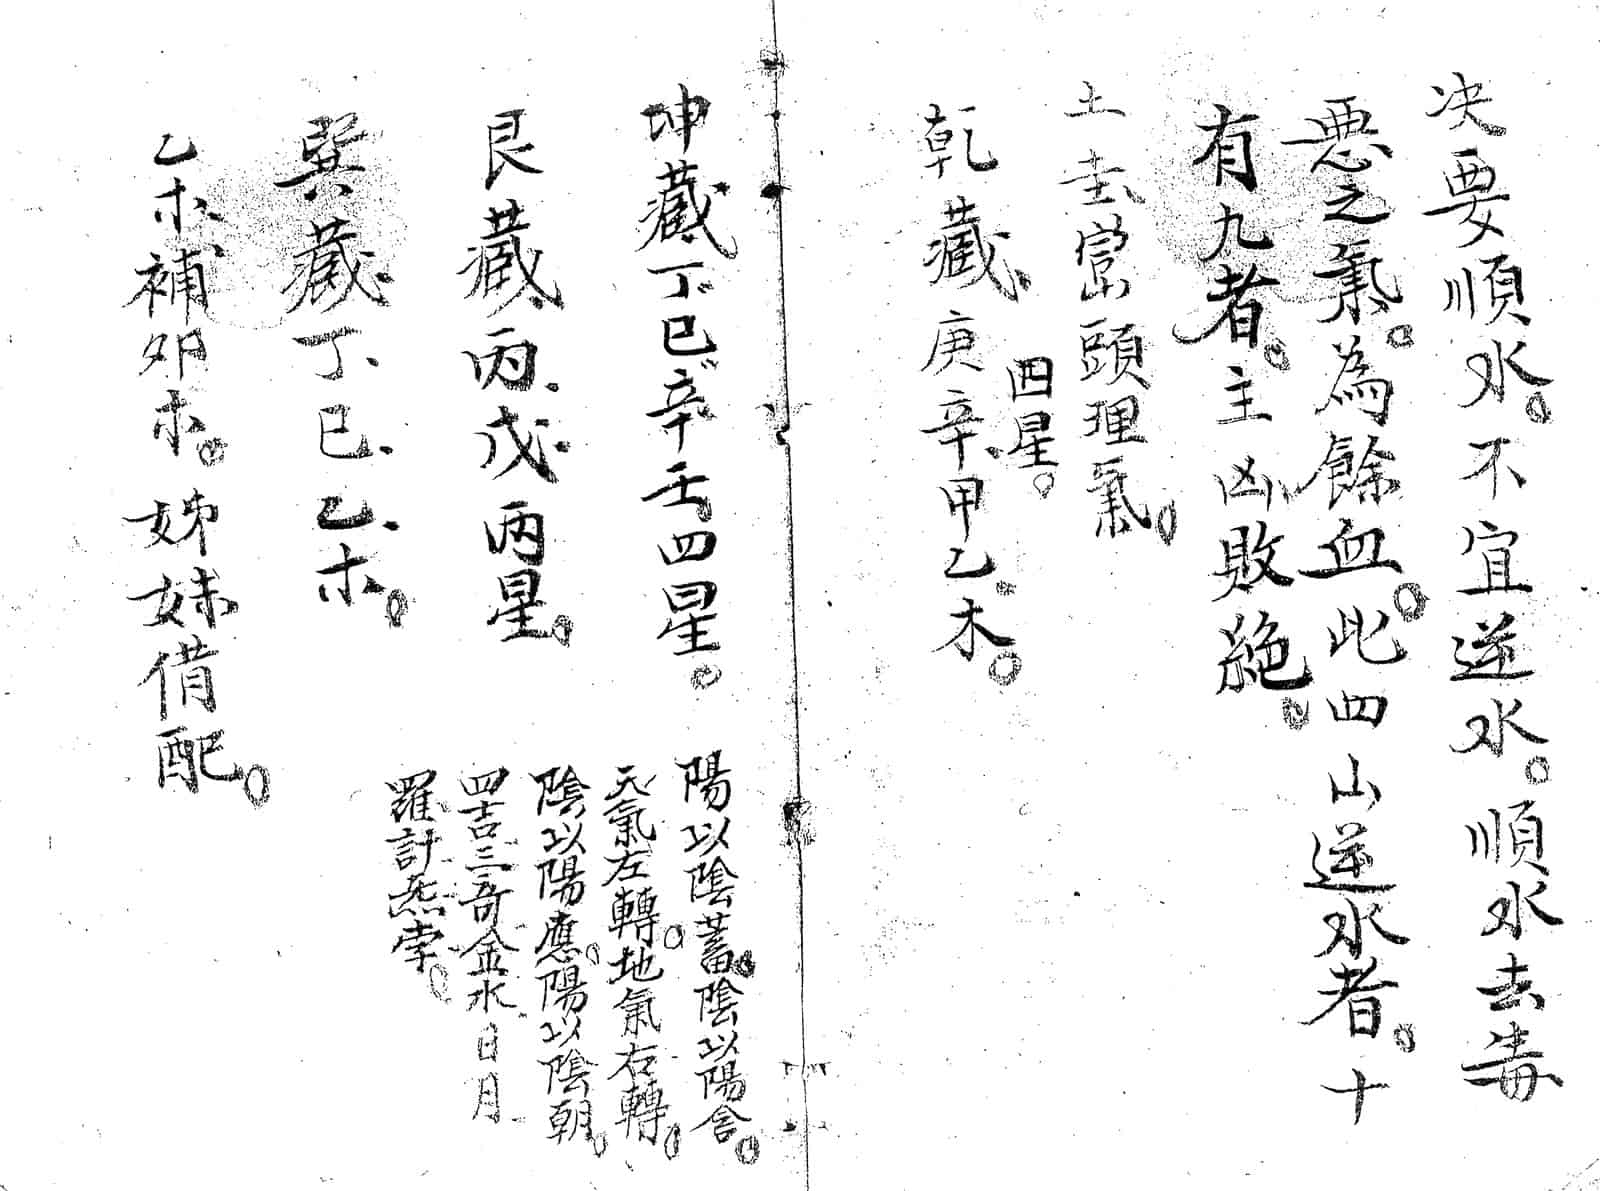 决要順水。不宜逆水。順水去毒
惡之氣。為餘血。此四山逆水者。十
有九者。主凶敗絶。
土圭當頭理氣。
四星。
乾藏庚辛甲乙木。
坤藏丁巳辛壬四星。
艮藏丙戊丙星。
巽藏丁巳乙木。
乙木補卯木。姊妹借配。
陽以陰蓄。陰以陽含。
天氣左轉。地氣右轉。
陰以陽應。陽以陰朝。
四吉三奇金水日月
羅計炁孛。